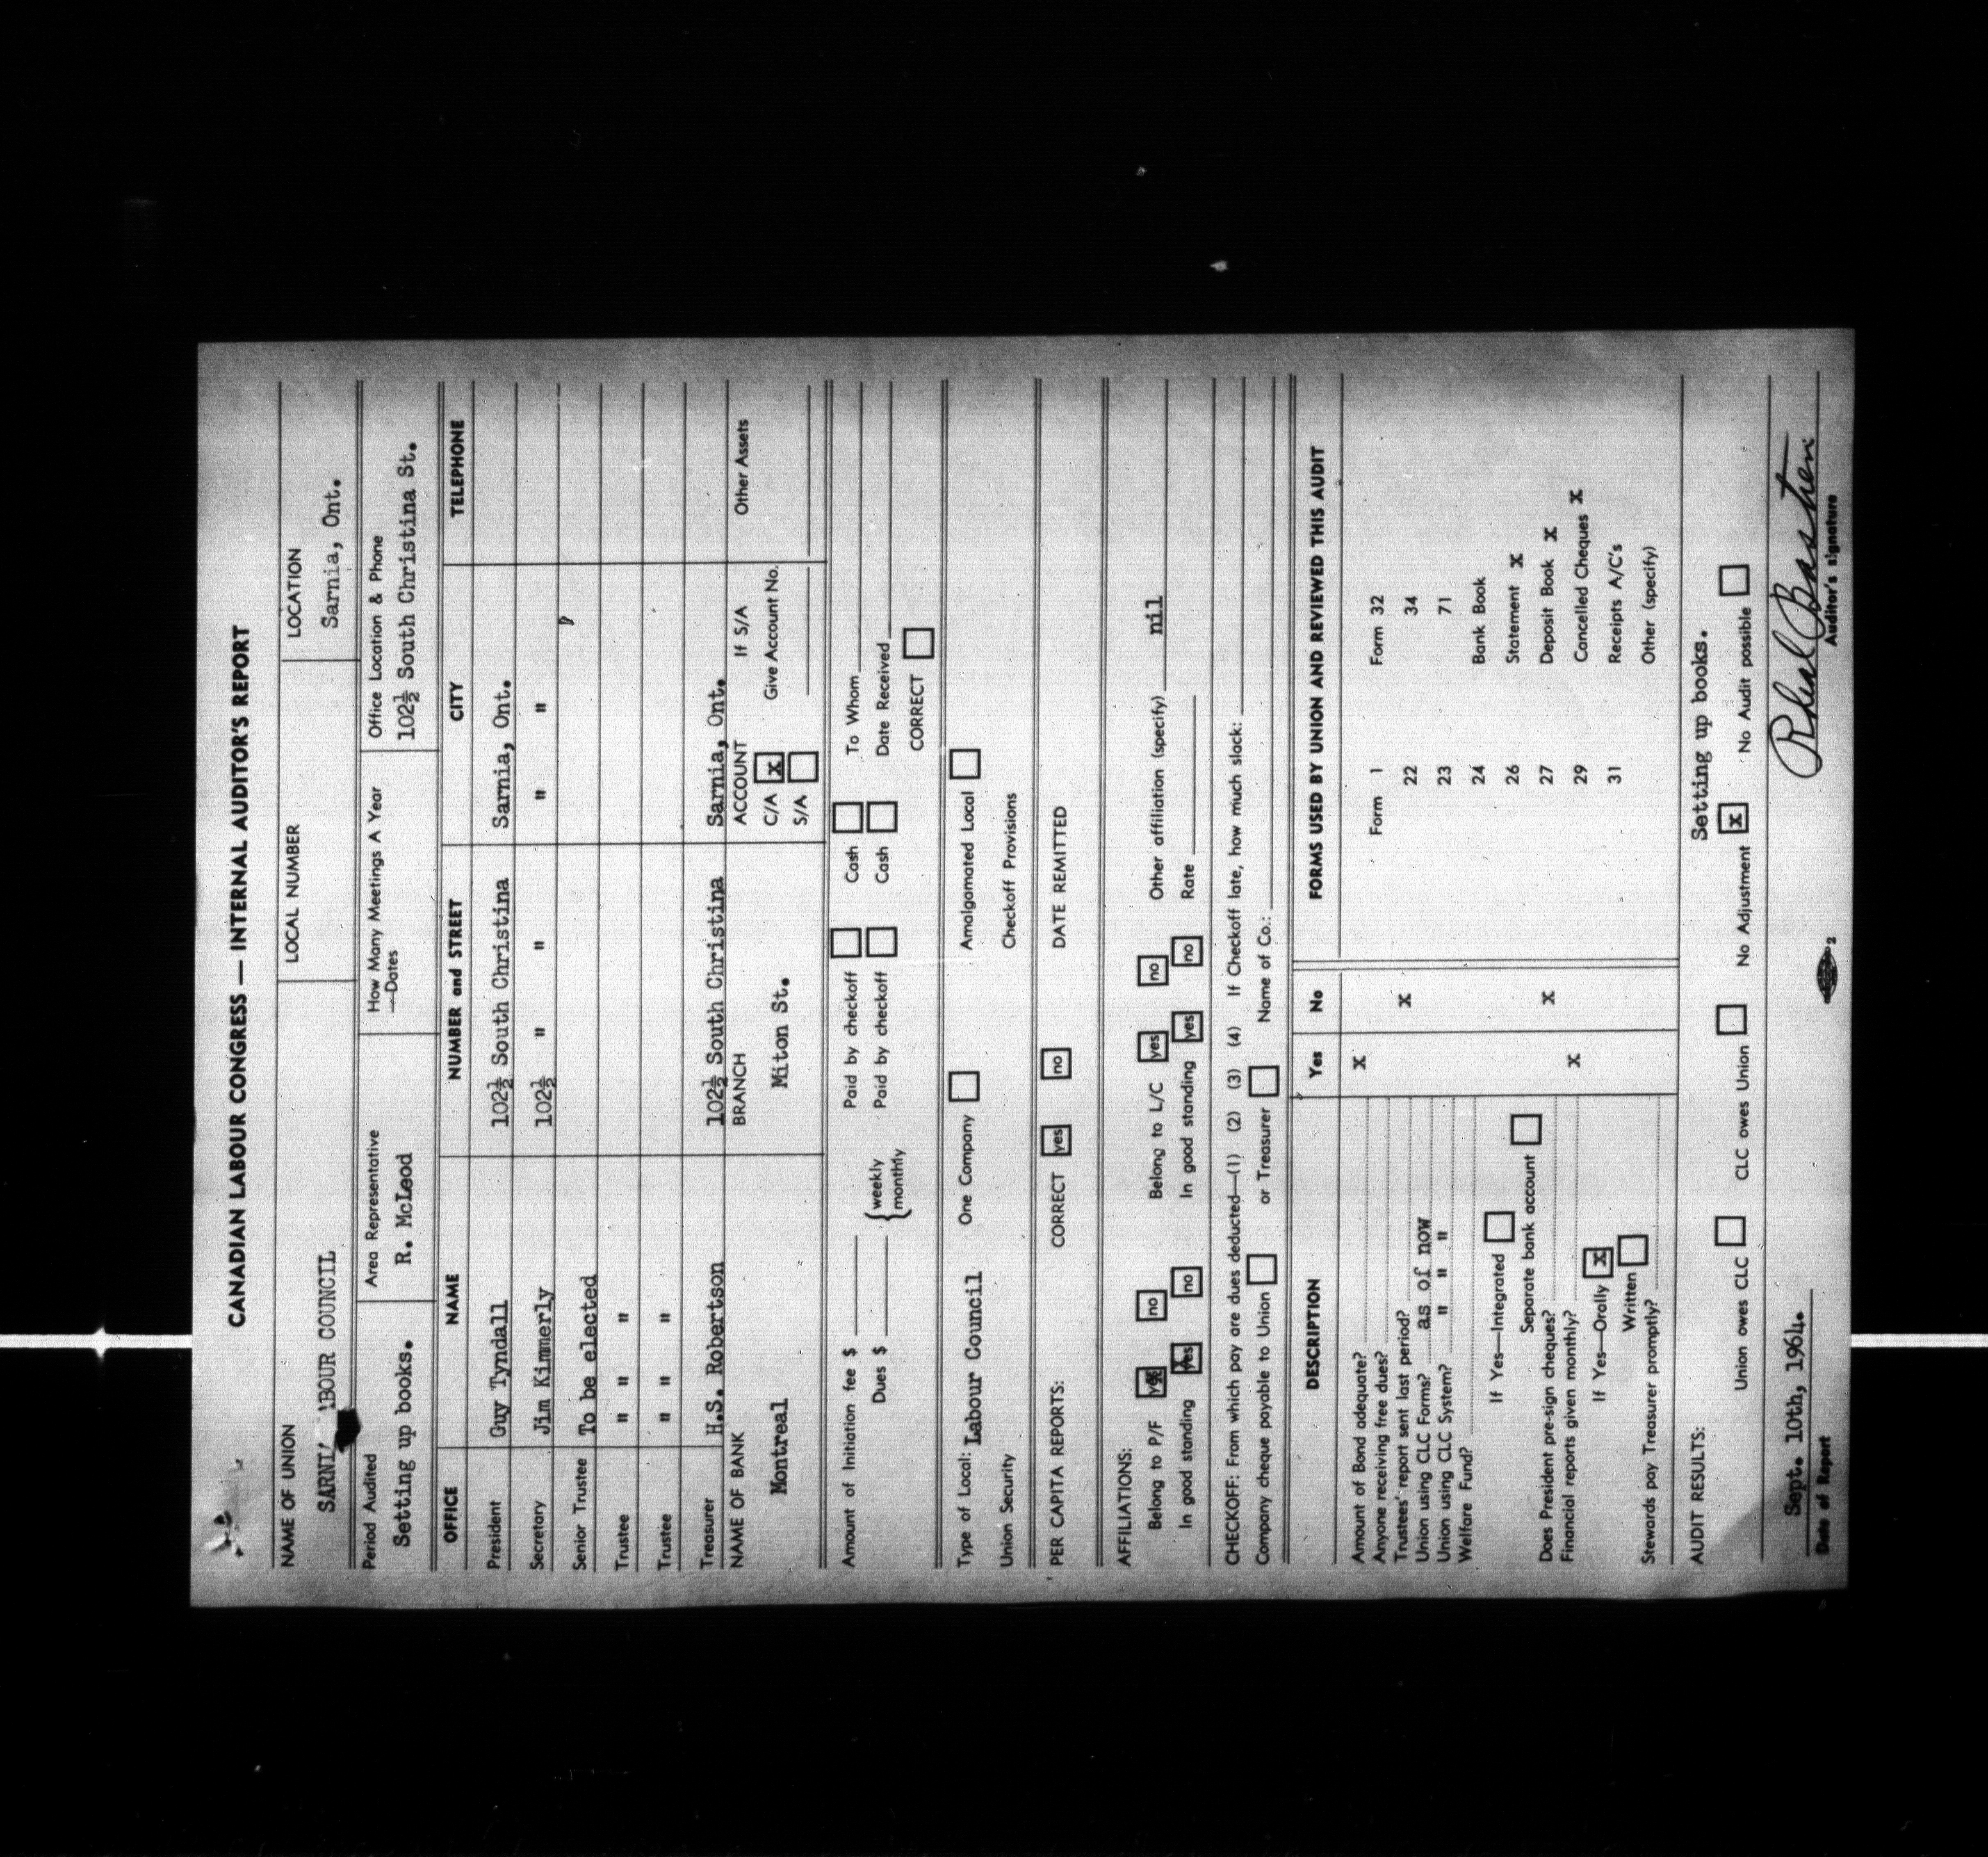 CANADIAN LABOUR CONGRESS — INTERNAL AUDITOR'S REPORT
NAME OF UNION LOCAL NUMBER LOCATION
LABOUR COUNCIL Sarnia, Ont.
Period Audited Area Representative How Many Meetings A Year —Dates Office Location & Phone
Setting up books. R. McLeod 102½ South Christina St.
OFFICE NAME NUMBER and STREET CITY TELEPHONE
President Guy Tyndall 102½ South Christina Sarnia, Ont.
Secretary Jim Kimmerly 102½ " " " "
Senior Trustee To be elected
Trustee " " "
Trustee " " "
Treasurer H.S. Robertson 102½ South Christina Sarnia, Ont.
NAME OF BANK BRANCH ACCOUNT If S/A Other Assets
Montreal Miton St. C/A x Give Account No.
S/A
Amount of Initiation fee $ Paid by checkoff Cash To Whom
Dues $ {weekly monthly Paid by checkoff Cash Date Received
CORRECT
Type of Local: Labour Council One Company Amalgamated Local
Union Security Checkoff Provisions
PER CAPITA REPORTS: CORRECT yes no DATE REMITTED
AFFILIATIONS:
Belong to P/F yes no Belong to L/C yes no Other affiliation (specify) nil
In good standing yes no In good standing yes no Rate
CHECKOFF: From which pay are dues deducted—(1) (2) (3) (4) If Checkoff late, how much slack:
Company cheque payable to Union or Treasurer Name of Co.:
DESCRIPTION Yes No FORMS USED BY UNION AND REVIEWED THIS AUDIT
Amount of Bond adequate? x
Anyone receiving free dues? Form 1 Form 32
Trustees' report sent last period? x
Union using CLC Forms? as of now 22 34
Union using CLC System? " " " 23 71
Welfare Fund? 24 Bank Book
If Yes—Integrated 26 Statement x
Separate bank account
Does President pre-sign cheques? x 27 Deposit Book x
Financial reports given monthly? x 29 Cancelled Cheques x
If Yes—Orally x 31 Receipts A/C's
Written
Stewards pay Treasurer promptly? Other (specify)
AUDIT RESULTS: Setting up books.
Union owes CLC CLC owes Union No Adjustment x No Audit possible
Sept. 10th, 1964.
Date of Report 2 Auditor's signature